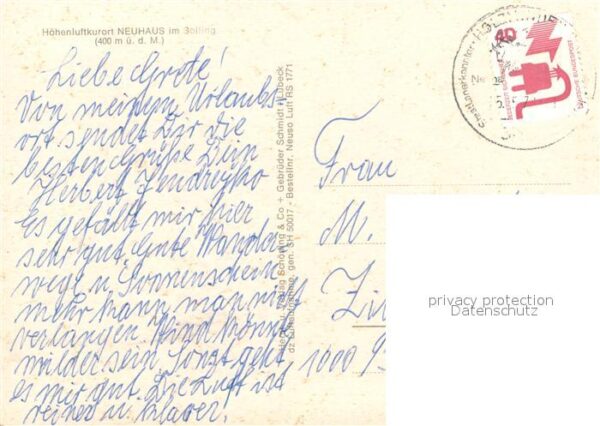 Höhenluftkurort NEUHAUS im Solling
(400 m ü. d. M.)
Liebe Grete!
Von meinem Urlaubs
ort sendet Dir die
besten Grüße Dein
Herbert
Es gefällt mir hier
sehr gut. Gute Wander
wege u. Sonnenschein
mehr kann man nicht
verlangen. Wind könnte
milder sein. Sonst geht
es mir gut. Die Luft ist
reiner u. klarer.
Verlag Schöning & Co + Gebrüder Schmidt, Lübeck
Luftaufnahme, gen. SH 50017 - Bestellnr. Neuso Luft RS 1771
Frau
M.
1000
40
DEUTSCHE BUNDESPOST
HOLZMINDEN
Staatl. anerkannter
privacy protection
Datenschutz